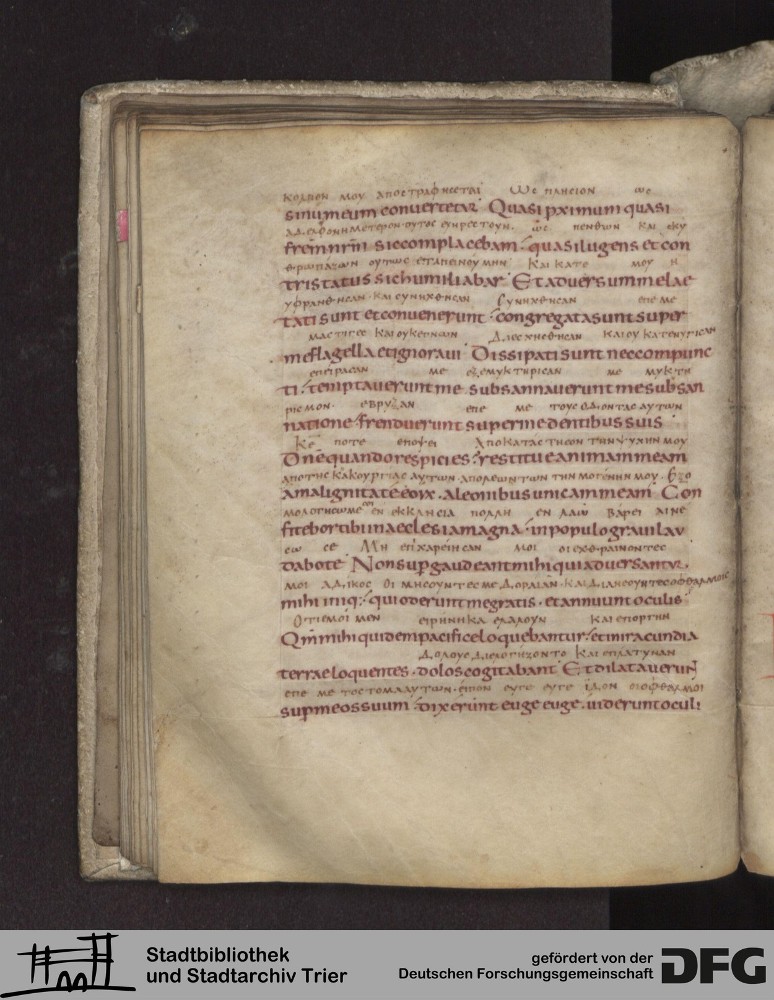 ΚΟΛΠΟΝ ΜΟΥ ΑΠΟΣΤΡΑΦΗCΕΤΑΙ ѠC ΠΛΗCΙΟΝ ѡC
sinummeum convertetur Quasi pximum quasi
ΑΔΕΛΦΟΝ ΗΜΕΤΕΡΟΝ·ΟΥΤΟC ΕΥΗΡΕCΤΟΥΝ. ѡC ΠΕΝΘѠΝ ΚΑΙ CΚΥ
frem nrm siccomplacebam : quasi lugens et con
ΘΡѠΠΑΖѠΝ ΟΥΤѠC ΕΤΑΠΕΙΝΟΥΜΗΝ ΚΑΙ ΚΑΤΟ ΜΟΥ Η
tristatus sichumiliabar Et adversummelae
ΥΦΡΑΝΘΗCΑΝ· ΚΑΙ CΥΝΗΧΘΗCΑΝ CΥΝΗΧΘΗCΑΝ ΕΠΕ ΜΕ
tati sunt et convenerunt : congregata sunt super
ΜΑCΤΙΓΕC ΚΑΙ ΟΥΚ ΕΓΝѠΝ ΔΙΕCΧΗCΘΗCΑΝ ΚΑΙ ΟΥ ΚΑΤΕΝΥΓΗCΑΝ
me flagella et ignoravi Dissipati sunt nec compunc
ΕΠΕΙΡΑCΑΝ ΜΕ ΕΞΕΜΥΚΤΗΡΙCΑΝ ΜΕ ΜΥΚΤΗ
ti : temptaverunt me subsannaverunt me subsan
ΡΙCΜΟΝ· ΕΒΡΥΞΑΝ ΕΠΕ ΜΕ ΤΟΥC ΟΔΟΝΤΑC ΑΥΤѠΝ
natione frenduerunt super me dentibus suis
ΚΕ ΠΟΤΕ ΕΠΟΨΕΙ ΑΠΟΚΑΤΑCΤΗCΟΝ ΤΗΝ ΨΥΧΗΝ ΜΟΥ
Dne quando respicies : restitue animam meam
ΑΠΟ ΤΗC ΚΑΚΟΥΡΓΙΑC ΑΥΤѠΝ ΑΠΟ ΛΕѠΝΤѠΝ ΤΗΝ ΜΟΓΕΝΗΝ ΜΟΥ· ΕΞΟ
a malignitate eorx . a leonibus unicam meam Con
ΜΟΛΟΓΗCѠΜΕ CΟΙ ΕΝ ΕΚΚΛΗCΙΑ ΠΟΛΛΗ ΕΝ ΛΑѠ ΒΑΡΕΙ ΑΙΝΕ
fitebor tibi in aecclesia magna : in populo gravi lau
CѠ CΕ ΜΗ ΕΠΙΧΑΡΕΙΗCΑΝ ΜΟΙ ΟΙ ΕΧΘΡΑΙΝΟΝΤΕC
dabo te Non supgaudeant mihi qui adversantur
ΜΟΙ ΑΔΙΚΟC ΟΙ ΜΗCΟΥΝΤΕC ΜΕ ΔΟΡΕΑΝ· ΚΑΙ ΔΙΑΝΕΟΥΝΤΕC ΟΦΘΑΛΜΟΙC
mihi iniq; : qui oderunt me gratis . et annuunt oculis
ΟΤΙ ΕΜΟΙ ΜΕΝ ΕΙΡΗΝΙΚΑ ΕΛΑΛΟΥΝ ΚΑΙ ΕΠ ΟΡΓΗΝ
Qm mihi quidem pacifice loquebantur : et in iracundia
ΔΟΛΟΥC ΔΙΕΛΟΓΙΖΟΝΤΟ ΚΑΙ ΕΠΛΑΤΥΝΑΝ
terrae loquentes . dolos cogitabant Et dilataverunt
ΕΠΕ ΜΕ ΤΟ CΤΟΜΑ ΑΥΤѠΝ· ΕΙΠΟΝ ΕΥΓΕ ΕΥΓΕ ΙΔΟΝ ΟΙ ΟΦΘΑΛΜΟΙ
sup me os suum : dixerunt euge euge . viderunt oculi
Stadtbibliothek
und Stadtarchiv Trier
gefördert von der
Deutschen Forschungsgemeinschaft DFG